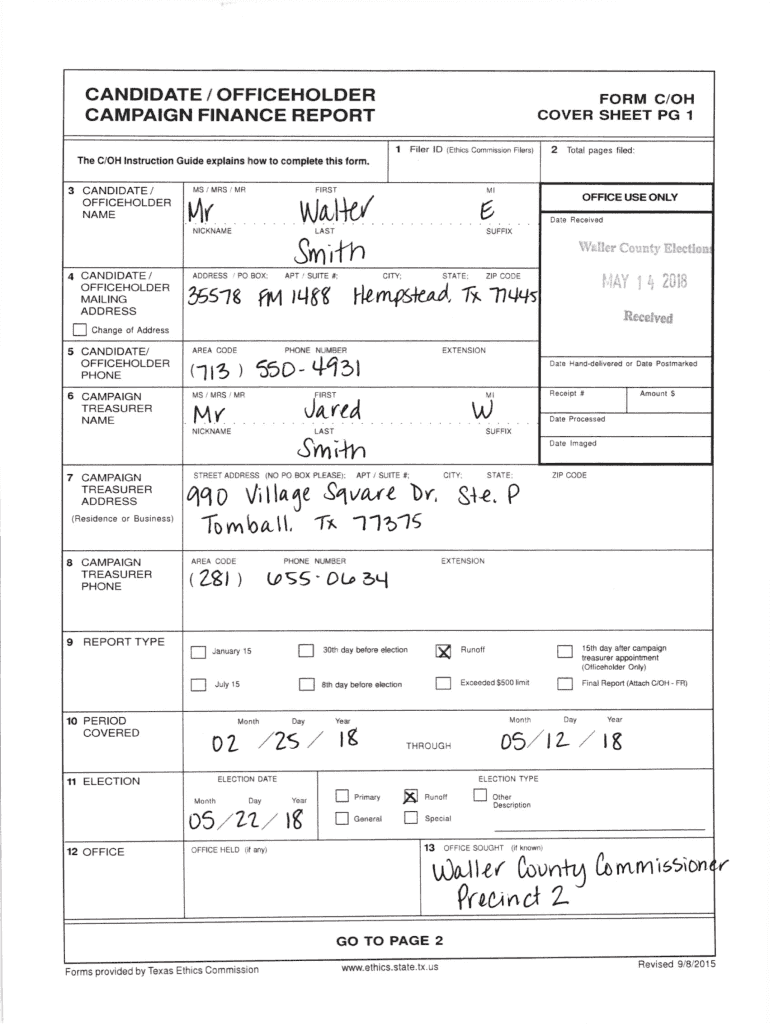 CANDIDATE / OFFICEHOLDER
CAMPAIGN FINANCE REPORT
FORM C/OH
COVER SHEET PG 1
The C/OH Instruction Guide explains how to complete this form.
1 Filer ID (Ethics Commission Filers)
2 Total pages filed:
3 CANDIDATE / OFFICEHOLDER NAME
MS / MRS / MR FIRST MI
Mr Walter E
NICKNAME LAST SUFFIX
Smith
OFFICE USE ONLY
Date Received
Waller County Elections
MAY 14 2018
Received
4 CANDIDATE / OFFICEHOLDER MAILING ADDRESS
Change of Address
ADDRESS / PO BOX; APT / SUITE #; CITY; STATE; ZIP CODE
35578 FM 1488 Hempstead, Tx 77445
5 CANDIDATE/ OFFICEHOLDER PHONE
AREA CODE PHONE NUMBER EXTENSION
(713) 550-4931
Date Hand-delivered or Date Postmarked
6 CAMPAIGN TREASURER NAME
MS / MRS / MR FIRST MI
Mr Jared W
NICKNAME LAST SUFFIX
Smith
Receipt # Amount $
Date Processed
Date Imaged
7 CAMPAIGN TREASURER ADDRESS
(Residence or Business)
STREET ADDRESS (NO PO BOX PLEASE); APT / SUITE #; CITY; STATE; ZIP CODE
990 Village Square Dr. Ste. P
Tomball, Tx 77375
8 CAMPAIGN TREASURER PHONE
AREA CODE PHONE NUMBER EXTENSION
(281) 655-0634
9 REPORT TYPE
January 15
30th day before election
Runoff
15th day after campaign treasurer appointment (Officeholder Only)
July 15
8th day before election
Exceeded $500 limit
Final Report (Attach C/OH - FR)
10 PERIOD COVERED
Month Day Year
02 / 25 / 18
THROUGH
Month Day Year
05 / 12 / 18
11 ELECTION
ELECTION DATE
Month Day Year
05 / 22 / 18
ELECTION TYPE
Primary
Runoff
Other Description
General
Special
12 OFFICE
OFFICE HELD (if any)
13 OFFICE SOUGHT (if known)
Waller County Commissioner
Precinct 2
GO TO PAGE 2
Forms provided by Texas Ethics Commission
www.ethics.state.tx.us
Revised 9/8/2015